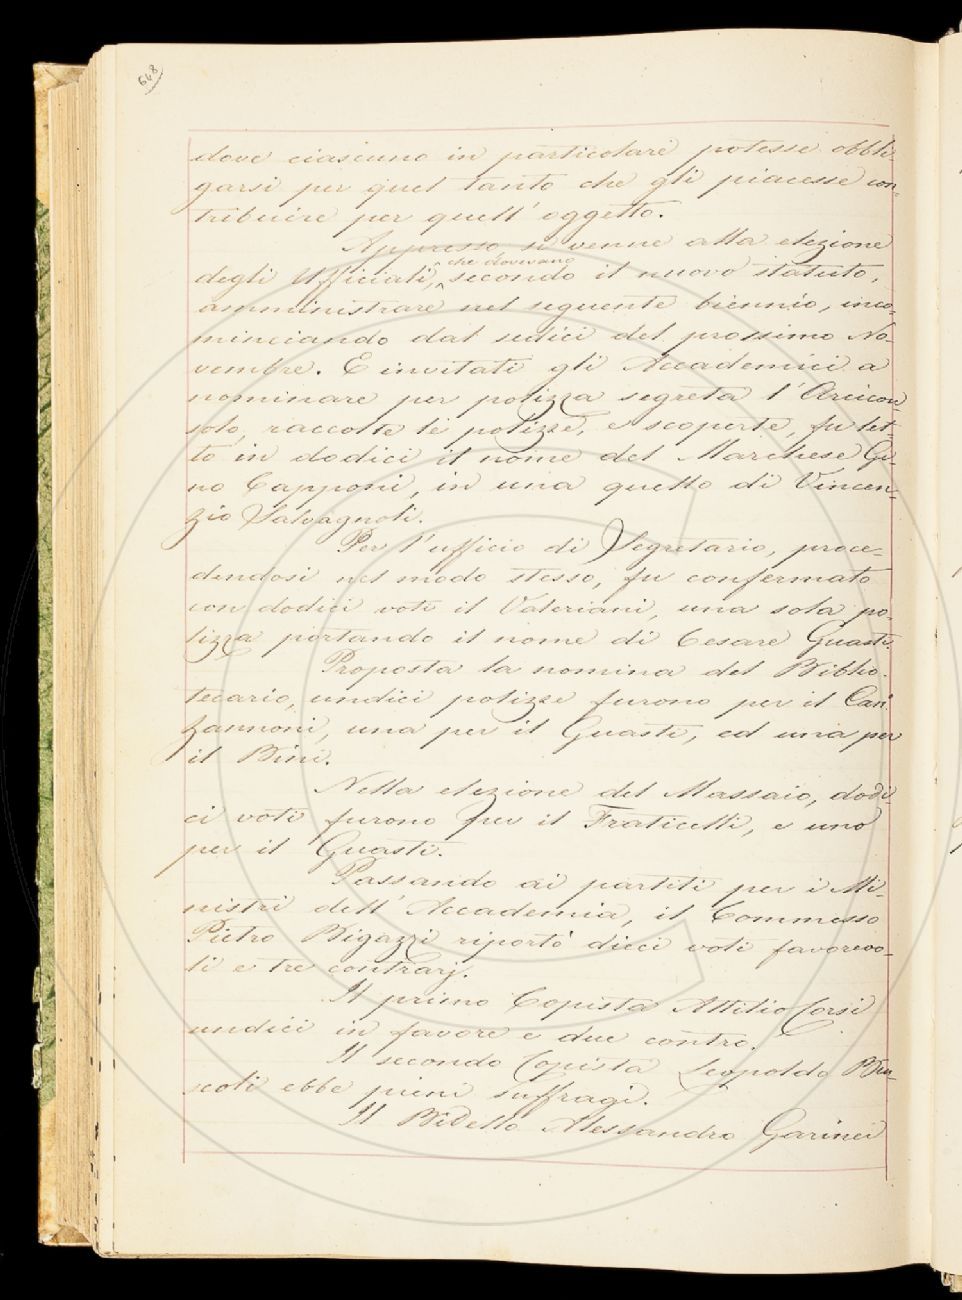 648
dove ciascuno in particolare potesse obbli-
garsi per quel tanto che gli piacesse con-
tribuire per quell' oggetto.
Appresso si venne alla elezione
che dovevano
degli Ufficiali, secondo il nuovo statuto,
amministrare nel seguente biennio, inco-
minciando dal sedici del prossimo No-
vembre. E invitati gli Accademici a
nominare per polizza segreta l'Arcicon-
solo, raccolte le polizze, e scoperte, fu let-
to in dodici il nome del Marchese Gi-
no Capponi, in una quello di Vincen-
zio Salvagnoli.
Per l'ufficio di Segretario, proce-
dendosi nel modo stesso, fu confermato
con dodici voti il Valeriani, una sola po-
lizza portando il nome di Cesare Guasti.
Proposta la nomina del Biblio-
tecario, undici polizze furono per il Can-
zannoni, una per il Guasti, ed una per
il Bini.
Nella elezione del Massaio, dodi-
ci voti furono per il Fraticelli, e uno
per il Guasti.
Passando ai partiti per i Mi-
nistri dell' Accademia, il Commesso
Pietro Bigazzi riportò dieci voti favorevo-
li e tre contrarj.
Il primo Copista Attilio Corsi
undici in favore e due contro.
Il secondo Copista Leopoldo Bru-
scoli ebbe pieni suffragi.
Il Bidello Alessandro Garinei